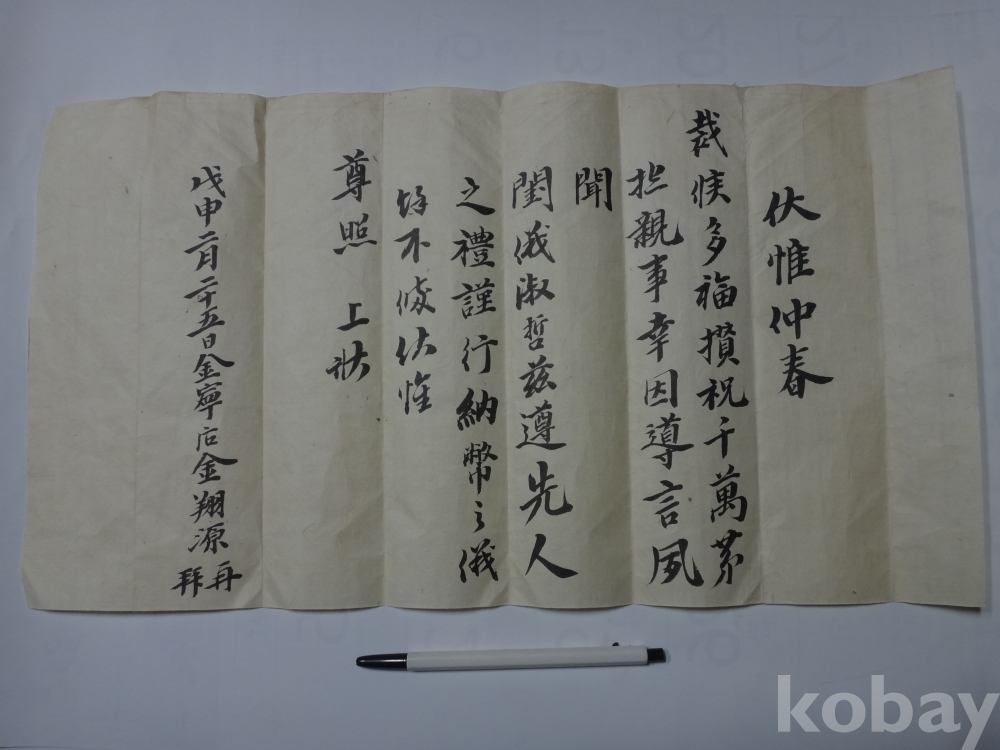 伏惟仲春
裁候多福攢祝千萬第
拙親事幸因導言夙
聞
閨儀淑哲玆遵先人
之禮謹行納幣之儀
餘不備伏惟
尊照 上狀
戊申二月二十五日金寧后金翔源 再拜
kobay